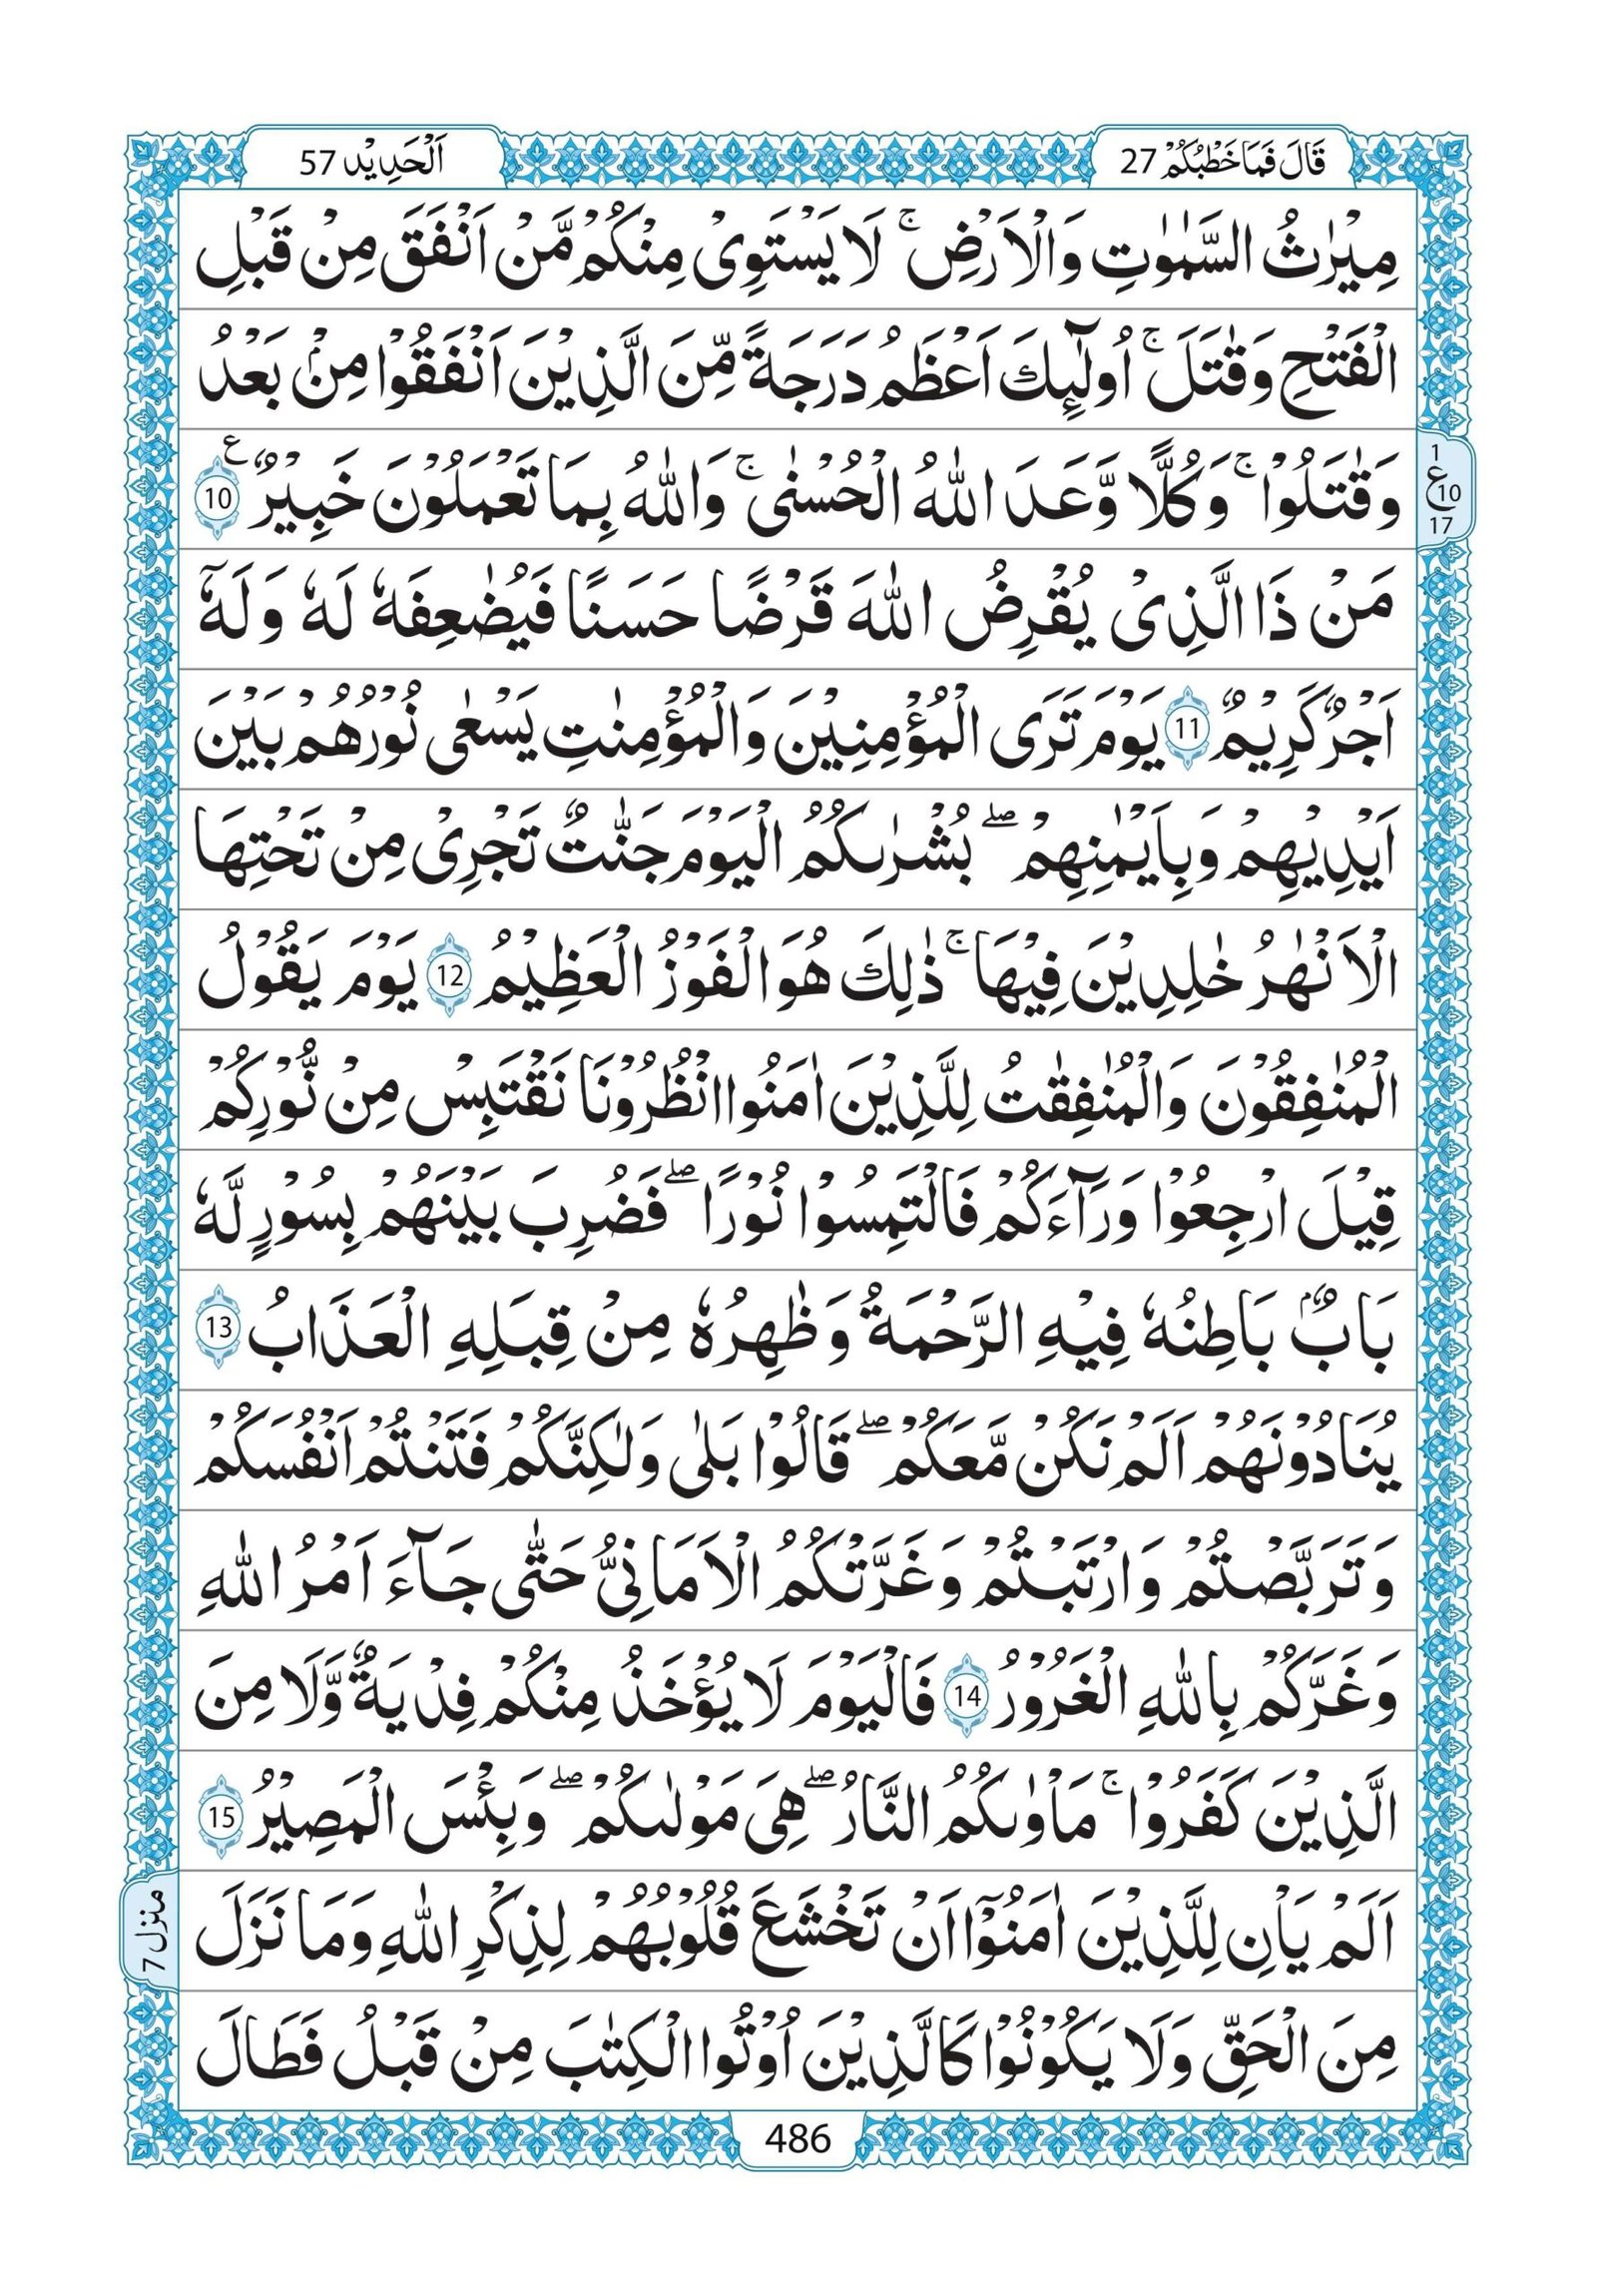 قَالَ فَمَا خَطْبُكُمْ 27
اَلْحَدِيْد 57
مِيْرٰثُ السَّمٰوٰتِ وَالْاَرْضِ ۚ لَا يَسْتَوِيْ مِنْكُمْ مَّنْ اَنْفَقَ مِنْ قَبْلِ
الْفَتْحِ وَقٰتَلَ ۚ اُولٰٓئِكَ اَعْظَمُ دَرَجَةً مِّنَ الَّذِيْنَ اَنْفَقُوْا مِنْۢ بَعْدُ
وَقٰتَلُوْا ۚ وَكُلًّا وَّعَدَ اللّٰهُ الْحُسْنٰى ۚ وَاللّٰهُ بِمَا تَعْمَلُوْنَ خَبِيْرٌ ع 10
1 ع 10 17
مَنْ ذَا الَّذِيْ يُقْرِضُ اللّٰهَ قَرْضًا حَسَنًا فَيُضٰعِفَهٗ لَهٗ وَلَهٗٓ
اَجْرٌ كَرِيْمٌ 11 يَوْمَ تَرَى الْمُؤْمِنِيْنَ وَالْمُؤْمِنٰتِ يَسْعٰى نُوْرُهُمْ بَيْنَ
اَيْدِيْهِمْ وَبِاَيْمٰنِهِمْ ۖ بُشْرٰىكُمُ الْيَوْمَ جَنّٰتٌ تَجْرِيْ مِنْ تَحْتِهَا
الْاَنْهٰرُ خٰلِدِيْنَ فِيْهَا ۚ ذٰلِكَ هُوَ الْفَوْزُ الْعَظِيْمُ 12 يَوْمَ يَقُوْلُ
الْمُنٰفِقُوْنَ وَالْمُنٰفِقٰتُ لِلَّذِيْنَ اٰمَنُوا انْظُرُوْنَا نَقْتَبِسْ مِنْ نُّوْرِكُمْ
قِيْلَ ارْجِعُوْا وَرَآءَكُمْ فَالْتَمِسُوْا نُوْرًا ۖ فَضُرِبَ بَيْنَهُمْ بِسُوْرٍ لَّهٗ
بَابٌۢ بَاطِنُهٗ فِيْهِ الرَّحْمَةُ وَظٰهِرُهٗ مِنْ قِبَلِهِ الْعَذَابُ 13
يُنَادُوْنَهُمْ اَلَمْ نَكُنْ مَّعَكُمْ ۖ قَالُوْا بَلٰى وَلٰكِنَّكُمْ فَتَنْتُمْ اَنْفُسَكُمْ
وَتَرَبَّصْتُمْ وَارْتَبْتُمْ وَغَرَّتْكُمُ الْاَمَانِيُّ حَتّٰى جَآءَ اَمْرُ اللّٰهِ
وَغَرَّكُمْ بِاللّٰهِ الْغَرُوْرُ 14 فَالْيَوْمَ لَا يُؤْخَذُ مِنْكُمْ فِدْيَةٌ وَّلَا مِنَ
الَّذِيْنَ كَفَرُوْا ۚ مَاْوٰىكُمُ النَّارُ ۖ هِيَ مَوْلٰىكُمْ ۖ وَبِئْسَ الْمَصِيْرُ 15
اَلَمْ يَاْنِ لِلَّذِيْنَ اٰمَنُوْٓا اَنْ تَخْشَعَ قُلُوْبُهُمْ لِذِكْرِ اللّٰهِ وَمَا نَزَلَ
منزل 7
مِنَ الْحَقِّ وَلَا يَكُوْنُوْا كَالَّذِيْنَ اُوْتُوا الْكِتٰبَ مِنْ قَبْلُ فَطَالَ
486